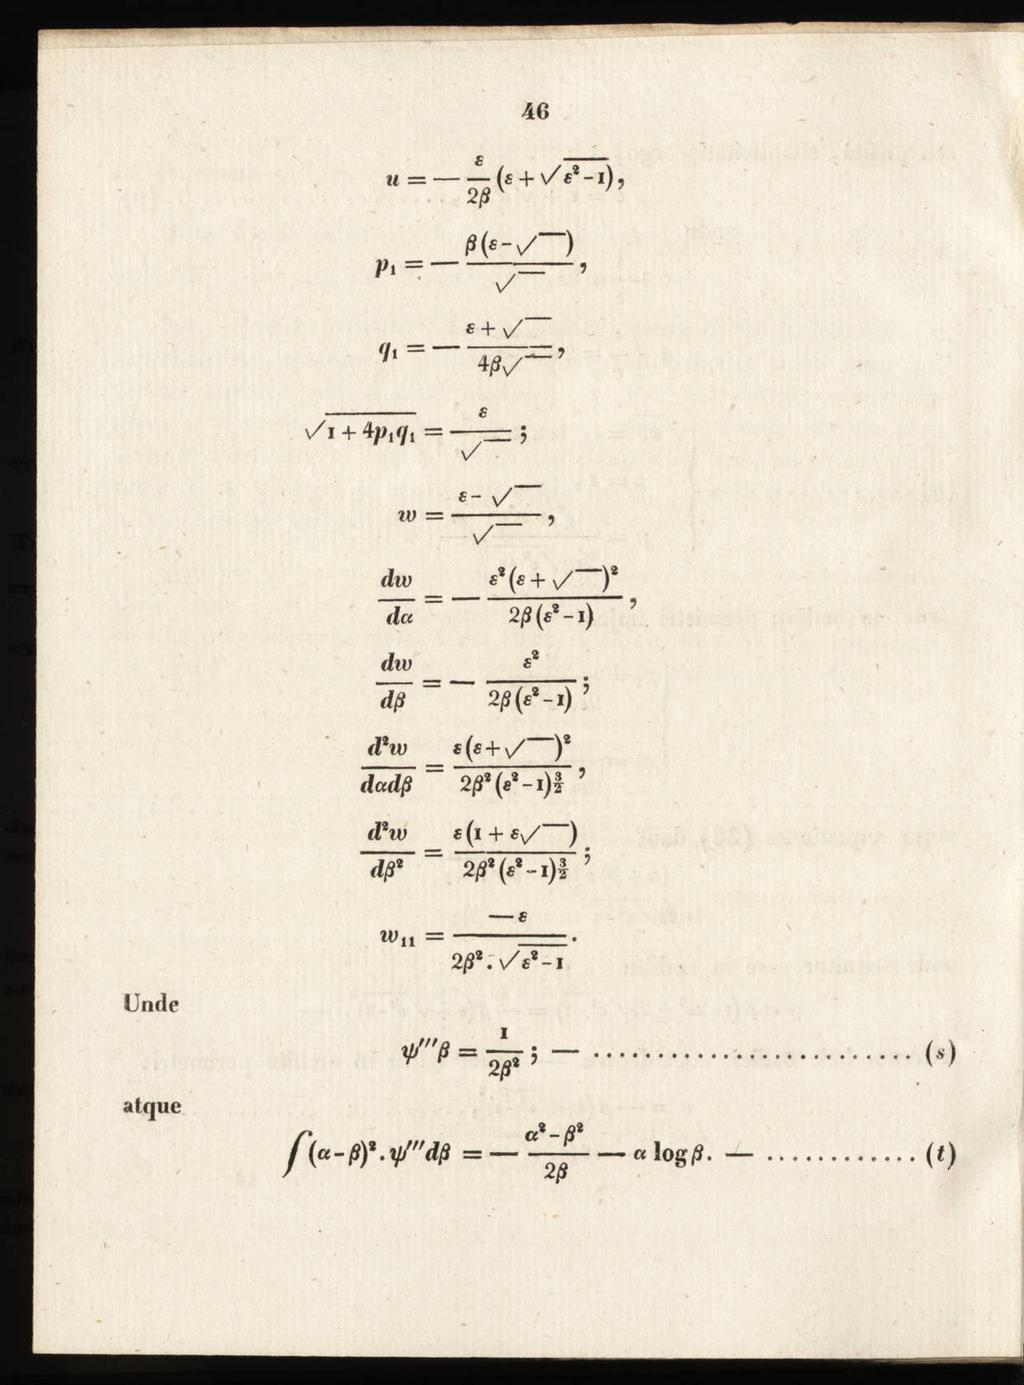 46
u = — ε/2β (ε + √(ε²-1)),
p₁ = — β(ε-√‾)/√‾,
q₁ = — (ε + √‾)/4β√‾,
√(1 + 4p₁q₁) = ε/√‾;
w = (ε - √‾)/√‾,
dw/dα = — ε²(ε + √‾)²/2β(ε²-1),
dw/dβ = — ε²/2β(ε²-1);
d²w/dαdβ = ε(ε+√‾)²/2β²(ε²-1)^(3/2),
d²w/dβ² = ε(1 + ε√‾)/2β²(ε²-1)^(3/2);
w₁₁ = —ε/2β².√(ε²-1).
Unde
ψ'''β = 1/2β²; — .......................... (s)
atque
∫(α-β)².ψ'''dβ = — (α²-β²)/2β — α logβ. — ............ (t)